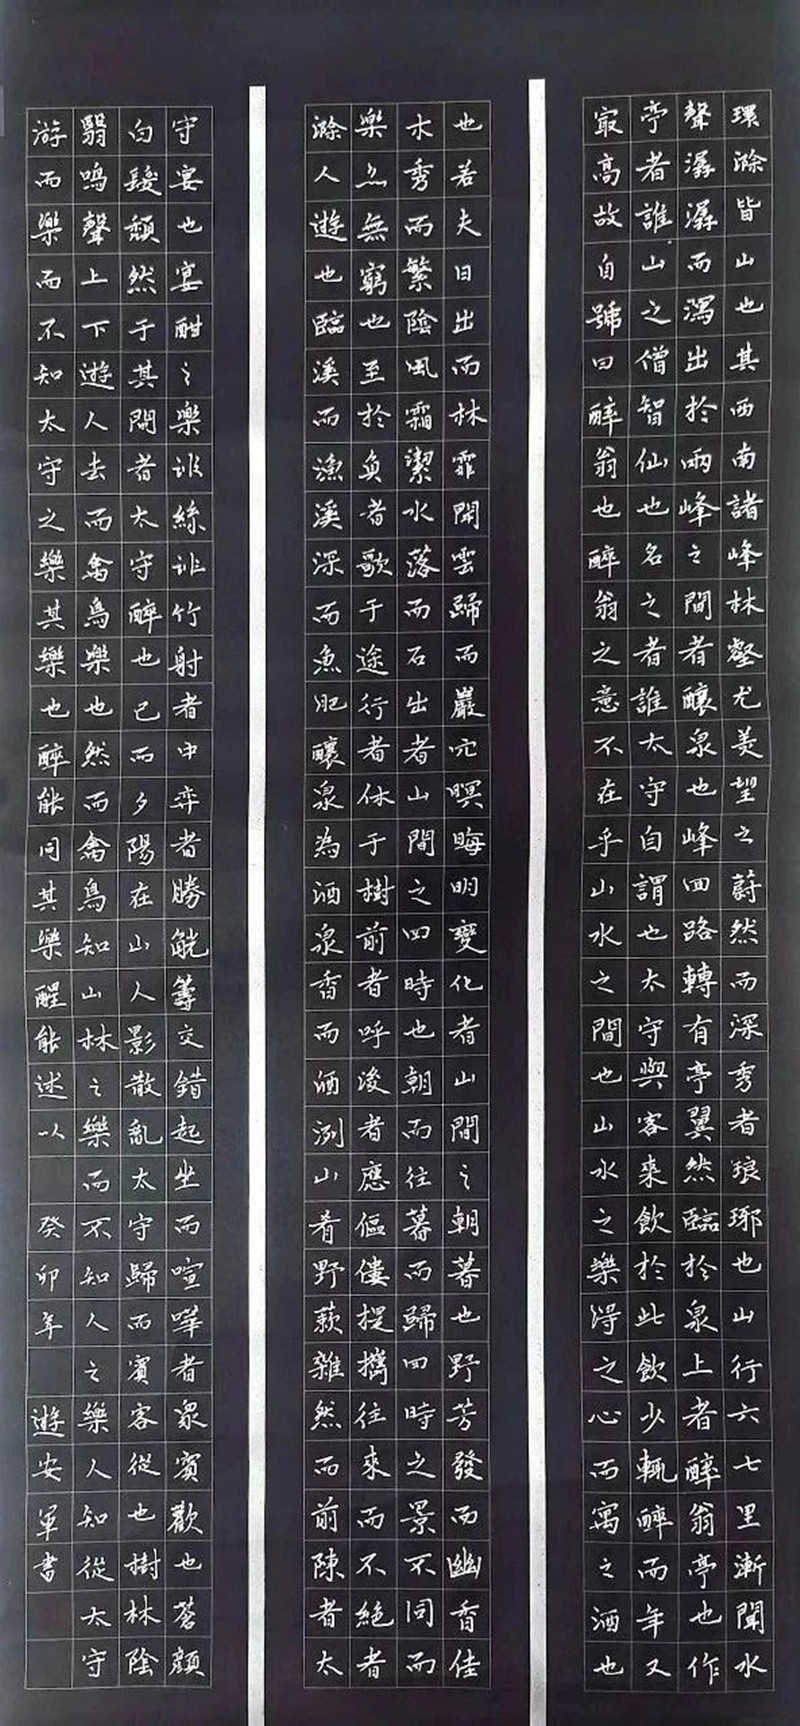 環滁皆山也其西南諸峰林壑尤美望之蔚然而深秀者琅琊也山行六七里漸聞水
聲潺潺而瀉出於兩峰之間者釀泉也峰回路轉有亭翼然臨於泉上者醉翁亭也作
亭者誰山之僧智仙也名之者誰太守自謂也太守與客來飲於此飲少輒醉而年又
最高故自號曰醉翁也醉翁之意不在乎山水之間也山水之樂得之心而寓之酒也
也若夫日出而林霏開雲歸而巖穴暝晦明變化者山間之朝暮也野芳發而幽香佳
木秀而繁陰風霜潔水落而石出者山間之四時也朝而往暮而歸四時之景不同而
樂亦無窮也至於負者歌于途行者休于樹前者呼後者應傴僂提攜往來而不絕者
滁人遊也臨溪而漁溪深而魚肥釀泉為酒泉香而酒洌山肴野蔌雜然而前陳者太
守宴也宴酣之樂非絲非竹射者中弈者勝觥籌交錯起坐而喧嘩者眾賓歡也蒼顏
白髮頹然于其間者太守醉也已而夕陽在山人影散亂太守歸而賓客從也樹林陰
翳鳴聲上下遊人去而禽鳥樂也然而禽鳥知山林之樂而不知人之樂人知從太守
游而樂而不知太守之樂其樂也醉能同其樂醒能述以 癸卯年 遊安軍書